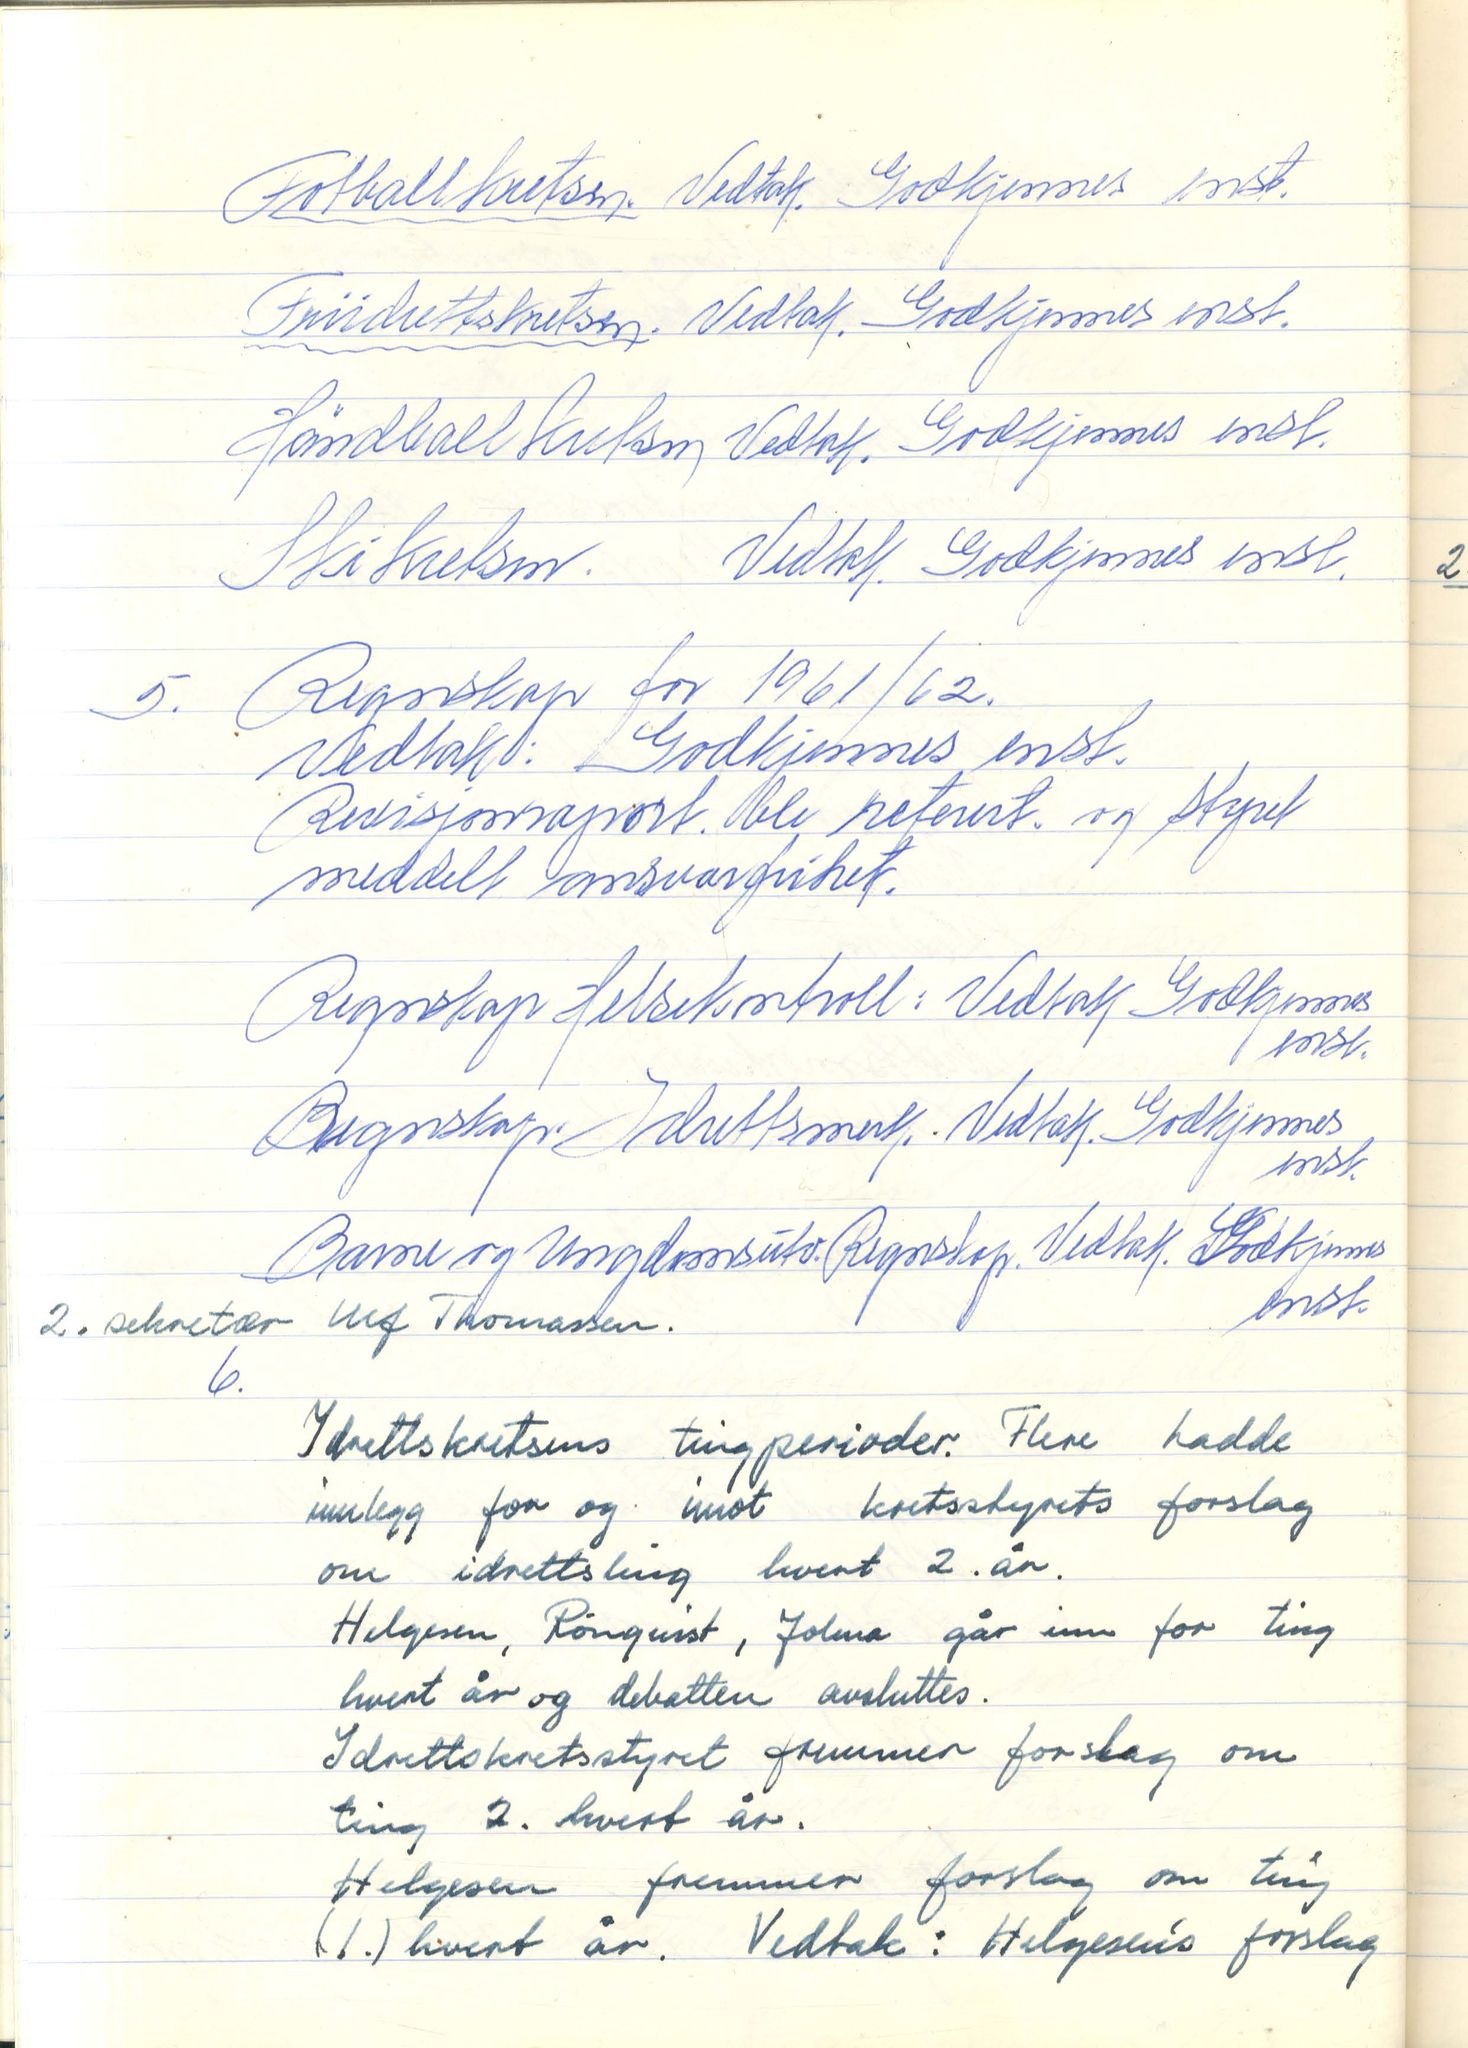 Fotballkretsen. Vedtak. Godkjennes enst.
Friidrettskretsen. Vedtak. Godkjennes enst.
Håndballkretsen Vedtak. Godkjennes enst.
Skikretsen. Vedtak. Godkjennes enst.
2
5. Regnskap for 1961/62.
Vedtak: Godkjennes enst.
Revisjonsraport. ble referert. og styret
meddelt ansvarfrihet.
Regnskap Helsekontroll: Vedtak Godkjennes
enst.
Regnskap. Idrettsmerk. Vedtak. Godkjennes
enst.
Barne og Ungdomsutv. Regnskap. Vedtak. Godkjennes
enst.
2. sekretær Ulf Thomassen.
6.
Idrettskretsens tingperioder. Flere hadde
innlegg for og imot kretsstyrets forslag
om idrettsting hvert 2. år.
Helgesen, Rönquist, Jolma går inn for ting
hvert år og debatten avsluttes.
Idrettskretsstyret fremmer forslag om
ting 2. hvert år.
Helgesen fremmer forslag om ting
(1.) hvert år. Vedtak: Helgesen's forslag